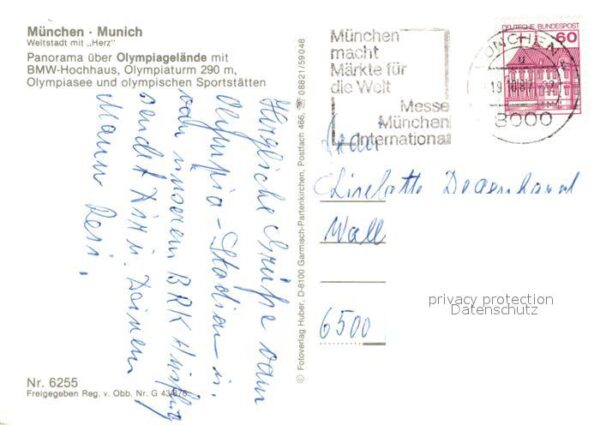 München · Munich
Weltstadt mit „Herz"
Panorama über Olympiagelände mit
BMW-Hochhaus, Olympiaturm 290 m,
Olympiasee und olympischen Sportstätten
Herzliche Grüße vom
Olympia-Stadion u.
von unserem BRK
sendet Dir u. Deinem
Mann Resi.
Nr. 6255
Freigegeben Reg. v. Obb. Nr. G 43/676
© Fotoverlag Huber, D-8100 Garmisch-Partenkirchen, Postfach 466, ☎ 08821/59048
München
macht
Märkte für
die Welt
Messe
München
International
DEUTSCHE BUNDESPOST
60
MÜNCHEN
8000
Liselotte
Wall
6500
privacy protection
Datenschutz